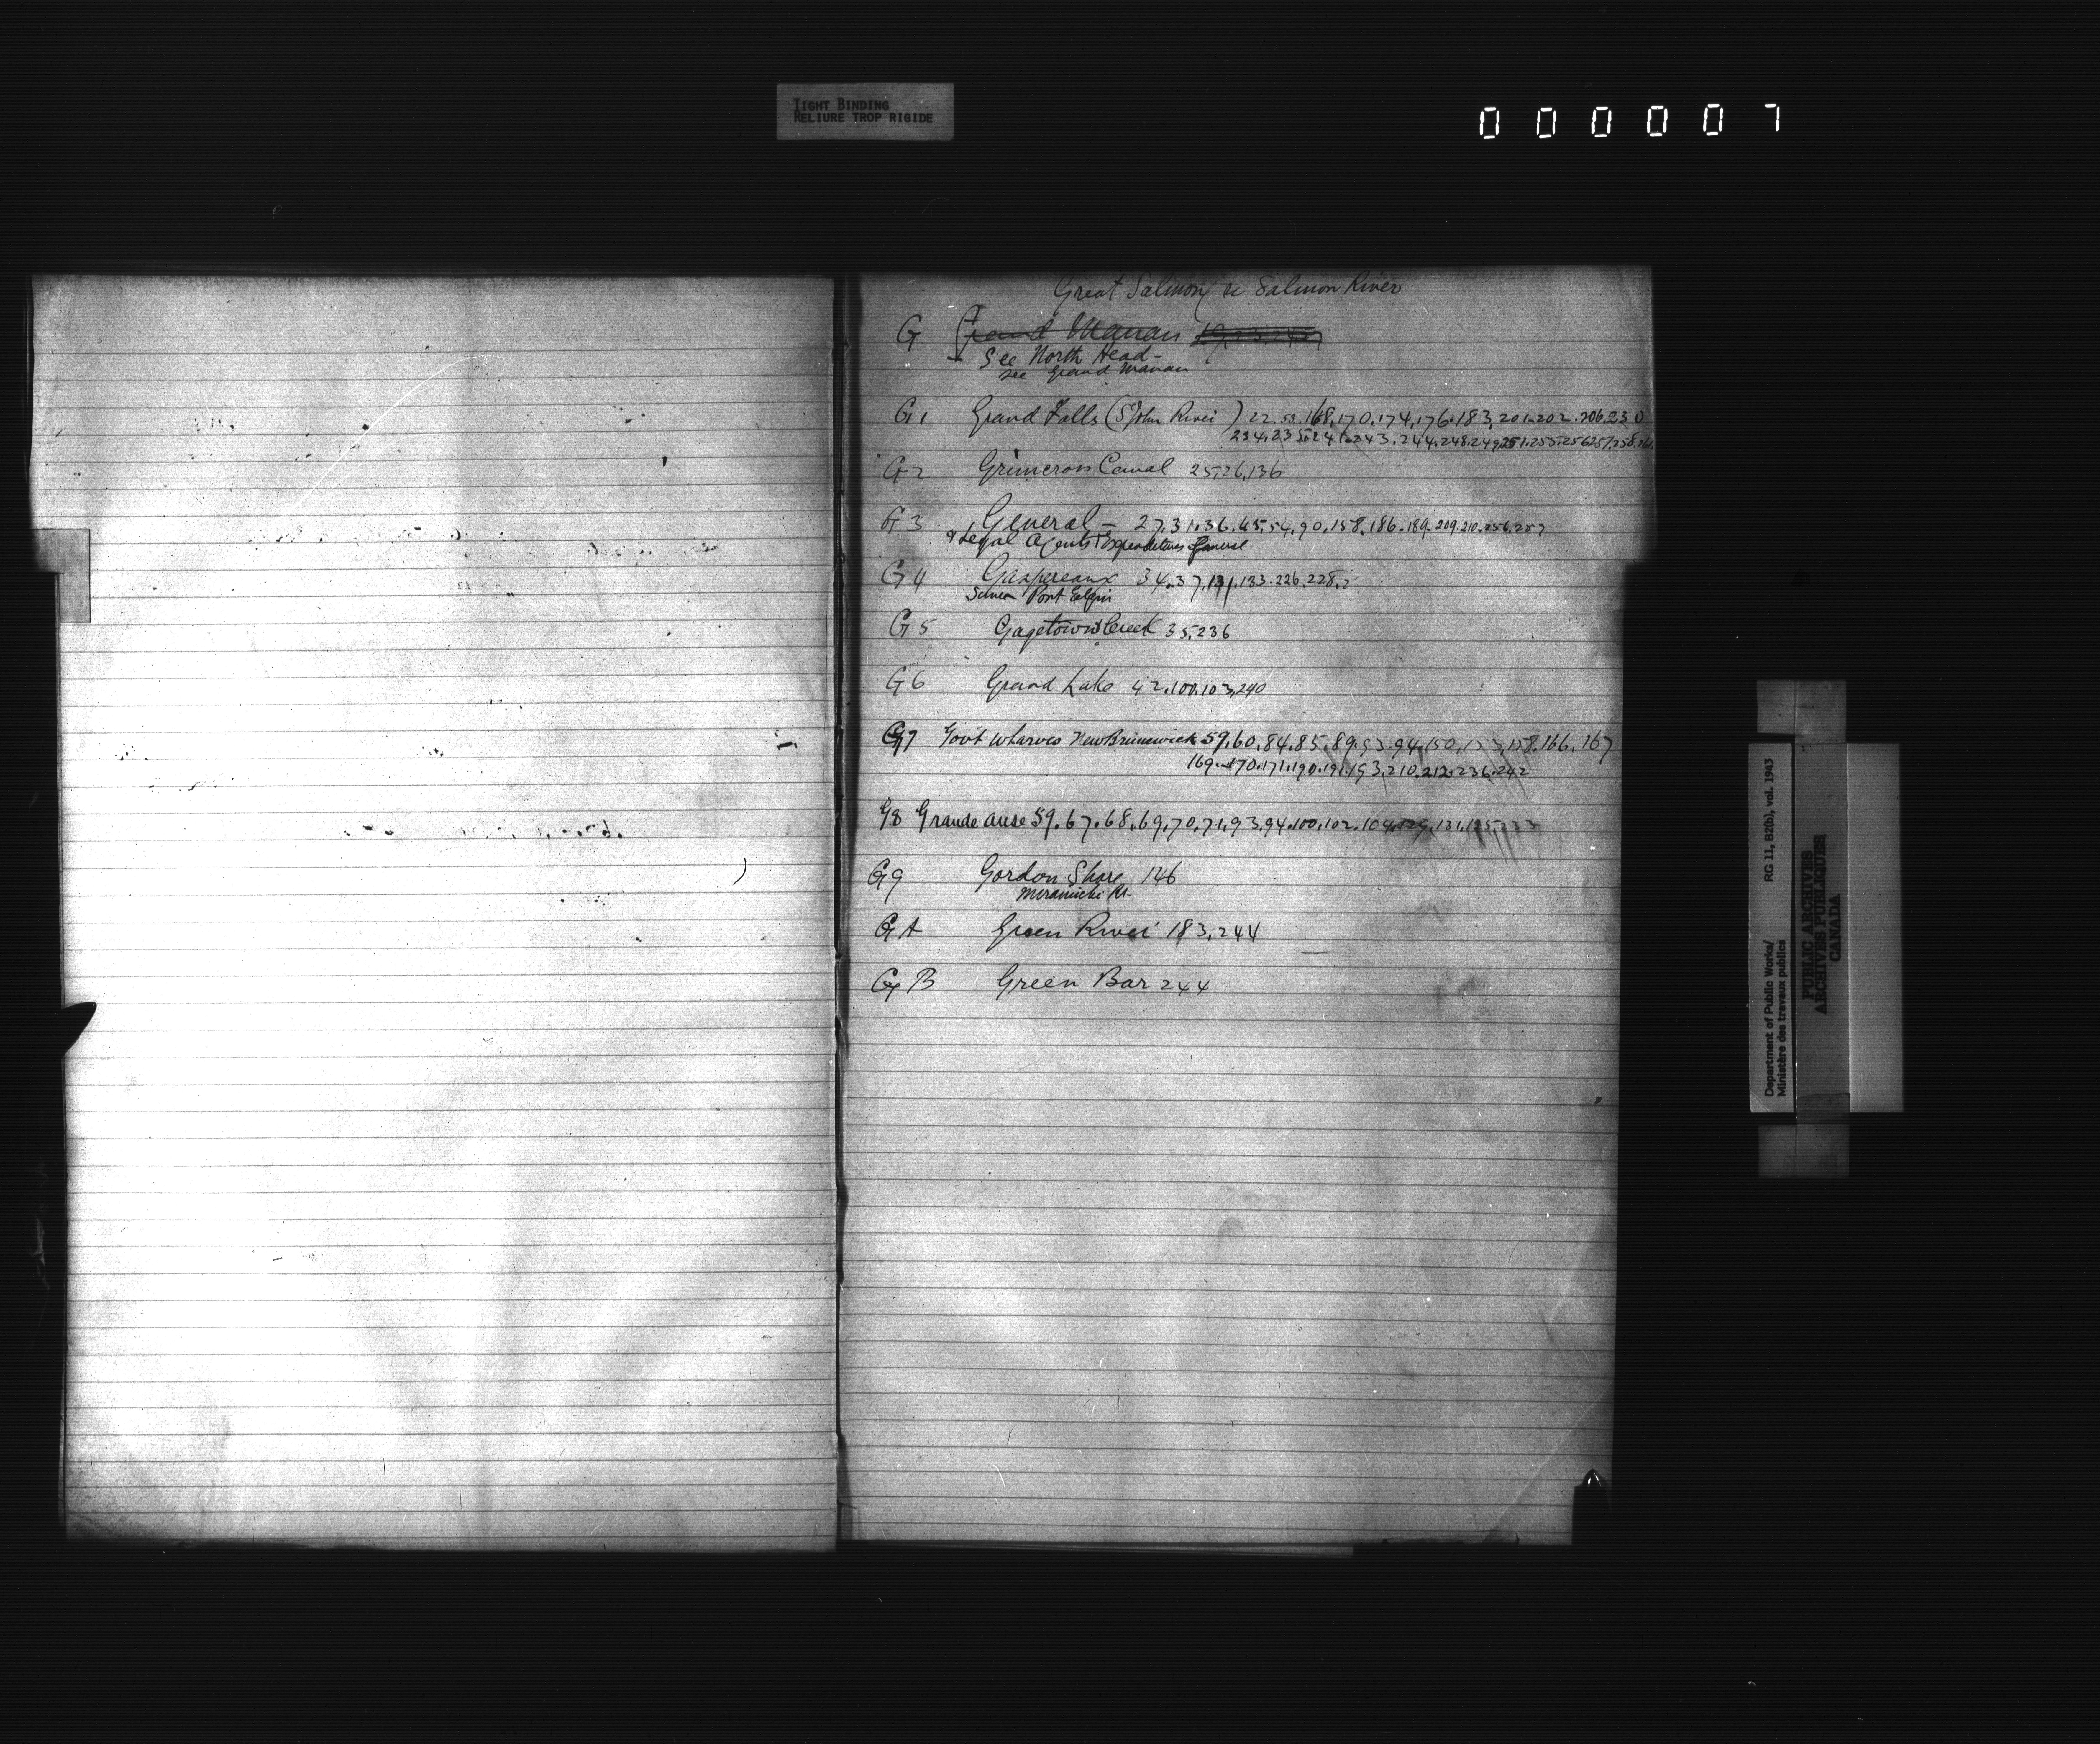 TIGHT BINDING
RELIURE TROP RIGIDE
000007
Great Salmon Salmon River
G Grand Manan
See North Head-
see Grand Manan
G1 Grand Falls (St John River) 22.53.168,170.174,176.183,201.202.206.230
234.235.241.243.244.248.249.251.253.256.257.258.
G2 Grimcross Canal 25,26,136
G3 General - 27.31.36.45.54.90.158.186.189.209.210.256.257
& Legal Agents Expenditures General
G4 Gaspereaux 34.37.131.133.226.228.
Port Elgin
G5 Gagetown Creek 35,236
G6 Grand Lake 42.100.103,240
G7 Govt Wharves New Brunswick 59,60.84.85.89.93.94.150.153,158.166.167
169.170.171.190.191.193.210.212.236.242
G8 Grande anse 59.67.68.69.70.71.93.94.100.102.104.129.131.
G9 Gordon Shore 146
Miramichi Rr.
GA Green River 183,244
GB Green Bar 244
Department of Public Works/ RG 11, B2(b), vol. 1943
Ministère des travaux publics
PUBLIC ARCHIVES
ARCHIVES PUBLIQUES
CANADA